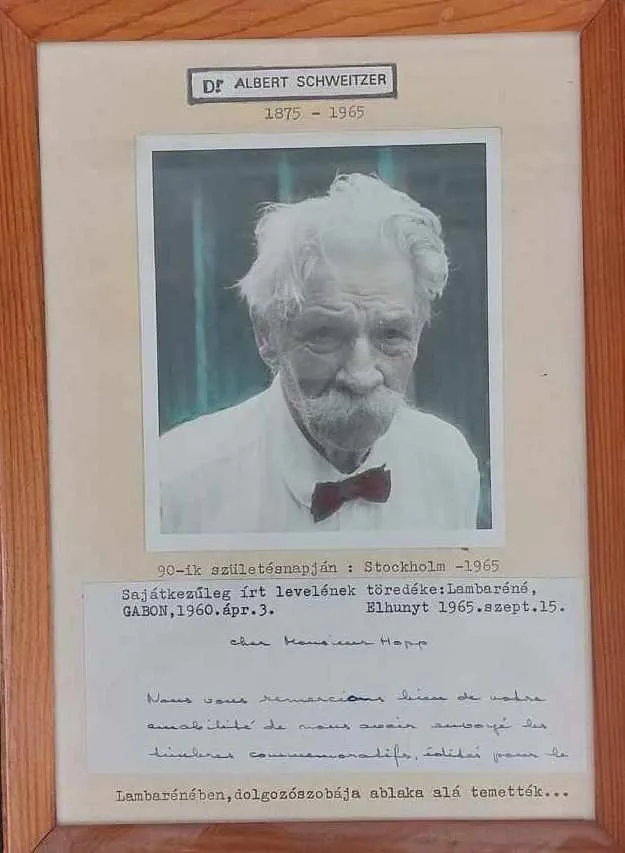 Dr ALBERT SCHWEITZER
1875 - 1965
90-ik születésnapján : Stockholm -1965
Sajátkezűleg írt levelének töredéke:Lambaréné,
GABON,1960.ápr.3. Elhunyt 1965.szept.15.
cher Monsieur Hopp
Nous vous remercions bien de votre
amabilité de nous avoir envoyé les
timbres commemoratifs, édités pour le
Lambarénében,dolgozószobája ablaka alá temették...